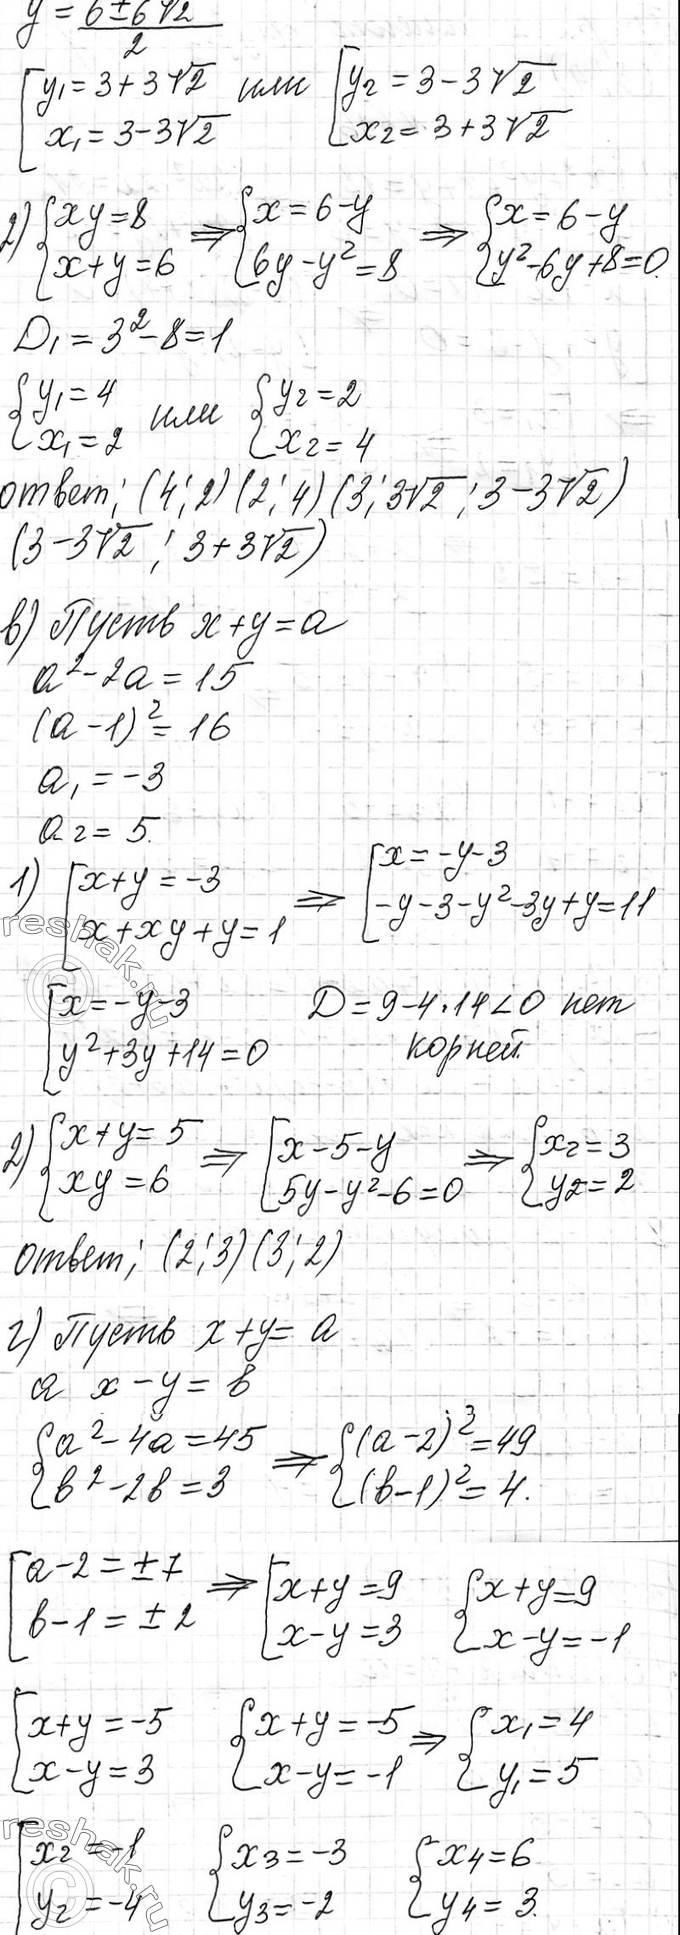 y = (6±6√2)/2
[y₁ = 3+3√2 x₁ = 3-3√2 или [y₂ = 3-3√2 x₂ = 3+3√2
2) {xy=8 x+y=6 ⇒ {x=6-y 6y-y²=8 ⇒ {x=6-y y²-6y+8=0.
D₁ = 3²-8=1
{y₁=4 x₁=2 или {y₂=2 x₂=4
ответ; (4;2)(2;4)(3;3√2;3-3√2)
(3-3√2; 3+3√2)
в) Пусть x+y=a
a²-2a=15
(a-1)²=16
a₁=-3
a₂=5.
1) [x+y=-3 x+xy+y=1 ⇒ [x=-y-3 -y-3-y²-3y+y=11
[x=-y-3 y²+3y+14=0 D=9-4·14<0 нет
корней.
2) {x+y=5 xy=6 ⇒ [x-5-y 5y-y²-6=0 ⇒ {x₂=3 y₂=2
ответ; (2;3)(3;2)
г) Пусть x+y=a
а x-y=b
{a²-4a=45 b²-2b=3 ⇒ {(a-2)³=49 (b-1)²=4.
[a-2=±7 b-1=±2 ⇒ [x+y=9 x-y=3 {x+y=9 x-y=-1
[x+y=-5 x-y=3 {x+y=-5 x-y=-1 ⇒ {x₁=4 y₁=5
[x₂=-1 y₂=-4 {x₃=-3 y₃=-2 {x₄=6 y₄=3.
reshak.ru
reshak.ru